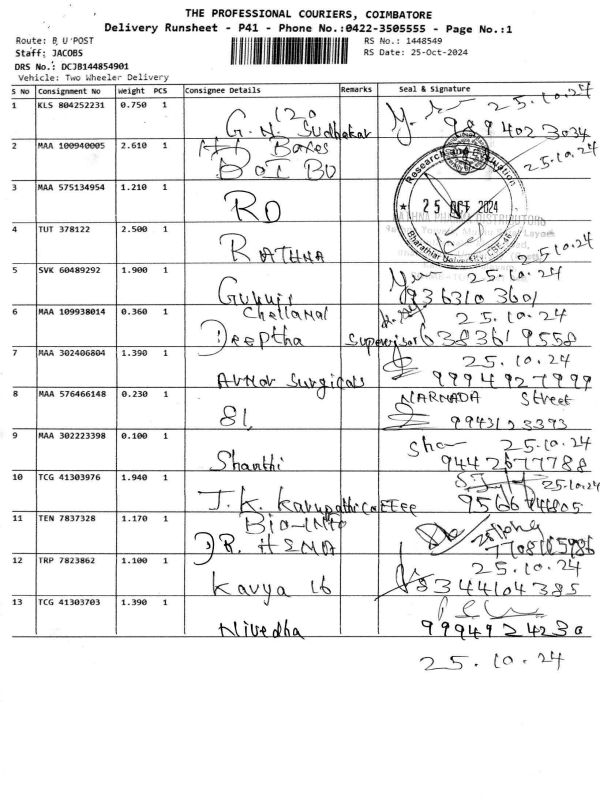 THE PROFESSIONAL COURIERS, COIMBATORE
Delivery Runsheet - P41 - Phone No.:0422-3505555 - Page No.:1
Route: B U POST
RS No.: 1448549
Staff: JACOBS
RS Date: 25-Oct-2024
DRS No.: DCJB144854901
Vehicle: Two Wheeler Delivery
S No Consignment No Weight PCS Consignee Details Remarks Seal & Signature
1 KLS 804252231 0.750 1 120 25.10.24
G. N. Sudhakar 9894023034
2 MAA 100940005 2.610 1 Boxes 25.10.24
BU
Research and Evaluation
3 MAA 575134954 1.210 1 RO
25 OCT 2024
Bharathiar University, CBE-46
4 TUT 378122 2.500 1 RATHNA 25.10.24
5 SVK 60489292 1.900 1 25.10.24
9363103601
6 MAA 109938014 0.360 1 Chellamal 25.10.24
Deeptha Supervisor 6383619558
7 MAA 302406804 1.390 1 25.10.24
Surgicals 9994927999
8 MAA 576466148 0.230 1 81, NARNADA Street
9943123393
9 MAA 302223398 0.100 1 Sha 25.10.24
Shanthi 9442677788
10 TCG 41303976 1.940 1 25.10.24
J. K. Karupatti Coffee
11 TEN 7837328 1.170 1 Bio-Info
DR. HEMA
12 TRP 7823862 1.100 1 25.10.24
Kavya 16 8344104385
13 TCG 41303703 1.390 1
Nivedha 9994924230
25.10.24